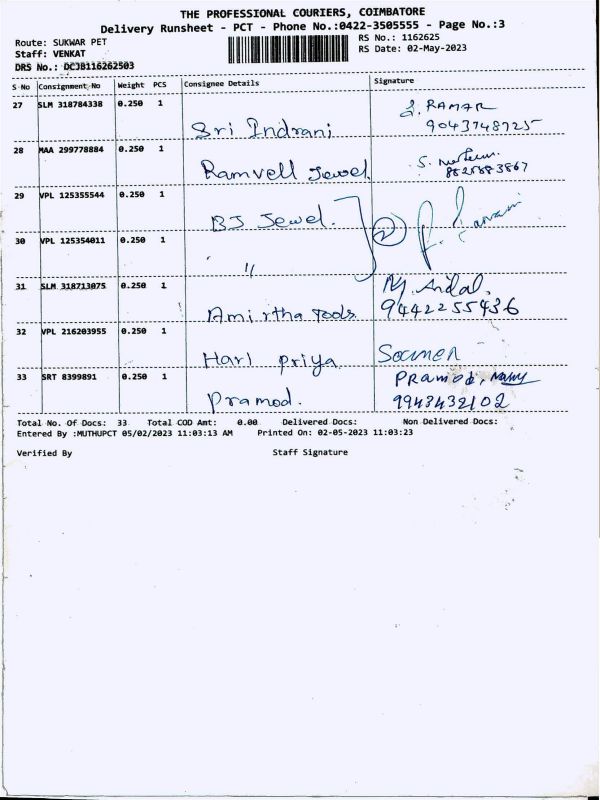 THE PROFESSIONAL COURIERS, COIMBATORE
Delivery Runsheet - PCT - Phone No.:0422-3505555 - Page No.:3
Route: SUKWAR PET
RS No.: 1162625
Staff: VENKAT
RS Date: 02-May-2023
DRS No.: DCJB116262503
S No Consignment No Weight PCS Consignee Details Signature
27 SLM 318784338 0.250 1 Sri Indrani RAMAR
9043748725
28 MAA 299778884 0.250 1 Ramvell Jewel S.
29 VPL 125355544 0.250 1 BJ Jewel. 2
30 VPL 125354011 0.250 1 "
31 SLM 318713075 0.250 1 Amirtha Tools M. Andal.
9442255436
32 VPL 216203955 0.250 1 Hari priya
33 SRT 8399891 0.250 1 Pramod. Pramod,
9943432102
Total No. Of Docs: 33 Total COD Amt: 0.00 Delivered Docs: Non Delivered Docs:
Entered By :MUTHUPCT 05/02/2023 11:03:13 AM Printed On: 02-05-2023 11:03:23
Verified By Staff Signature